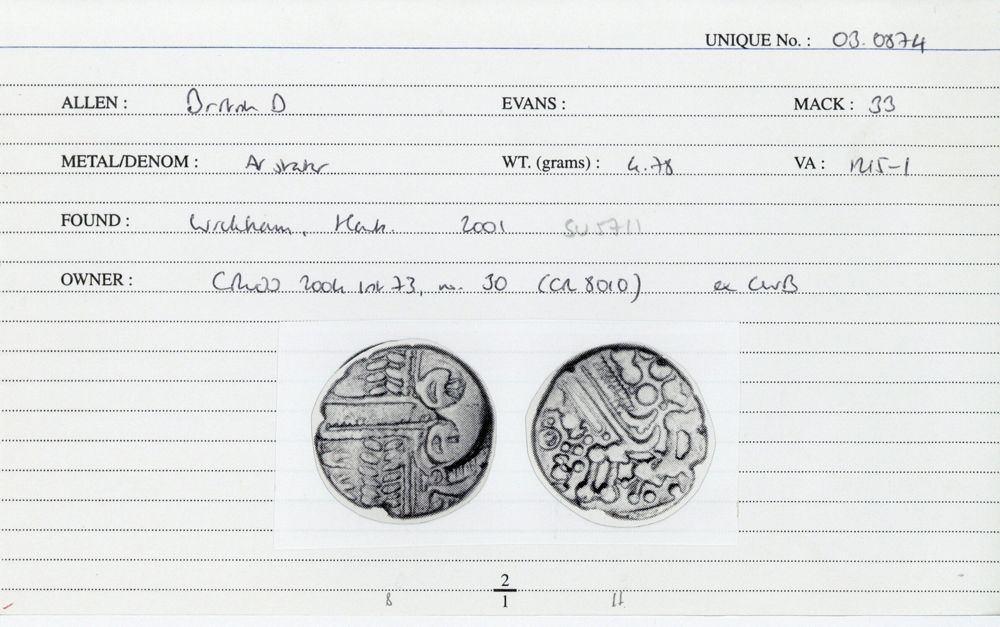 UNIQUE No. : 03.0874
ALLEN : British D EVANS : MACK : 33
METAL/DENOM : Ar stater WT. (grams) : 4.78 VA : 1215-1
FOUND : Wickham, Hants. 2001 SU5711
OWNER : 2004 list 73, no. 30 (CR 8010) ex
2
1
8 11